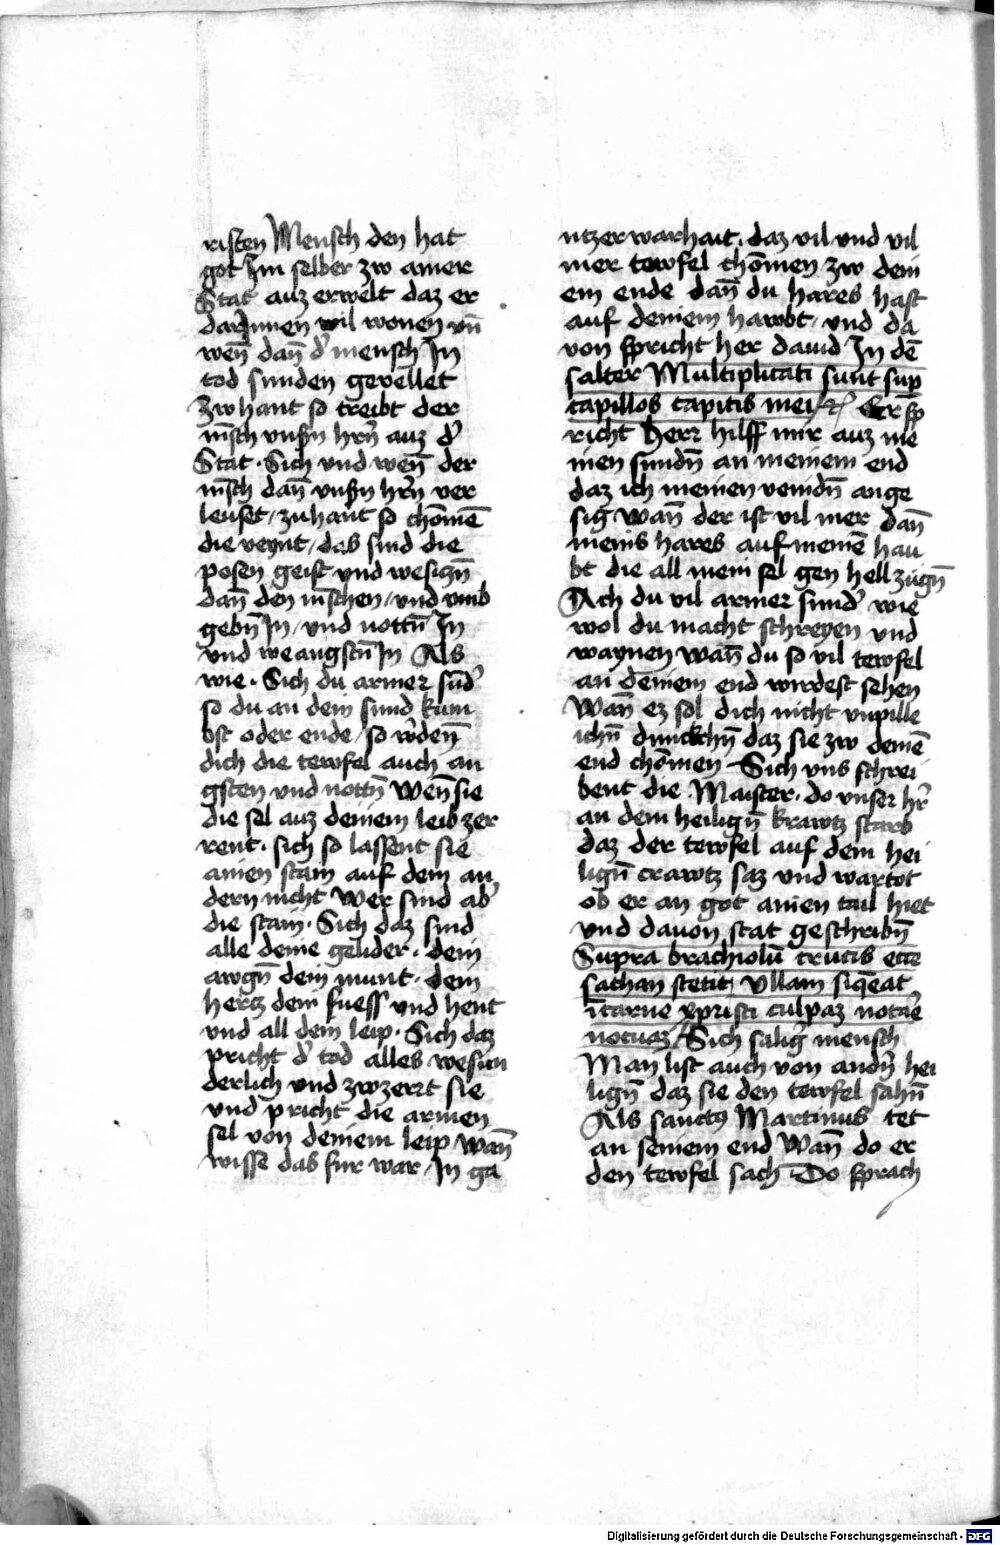 risten Mensch den hat
got Im selber zw ainer
Stat auz erwelt daz er
darInnen wil wonen vn̄
wen̄ dan̄ d' mensch In
tod sunden gevellet
zw hant so treibt der
m̄sch vnsn̄ hrn̄ auz d'
Stat · Sich vnd wen̄ der
m̄sch dan̄ vnsn̄ hrn̄ ver
leuset / zu hant so chōmē
die veynt / das sind die
posen geist vnd wesiczn̄
dan̄ den m̄schen / vnd vmb
gebn̄ In / vnd nottn̄ In
vnd we angstn̄ In Als
wie · Sich du armer sūd'
so du an dem sund kum
bst oder ende / so w'den̄
dich die tewfel auch an
gsten vnd nottn̄ Wen̄ sie
die sel auz deinem leib zer
rent · sich so lassent sie
ainen stain auf dem an
dern nicht Wer sind ab'
die stain · Sich daz sind
alle deine gelider · dein
awgn̄ dein munt · dein
hercz dein fuess vnd hent
vnd all dein leip · Sich daz
pricht d' tod alles wesun
derlich vnd zwzerrt sie
vnd pricht die armen
sel von deinem leip Wan̄
wisse das fur war / In ga
ntzer warhait · daz vil vnd vil
mer tewfel chōmen zw dein
em ende dan̄ du hares hast
auf deinem hawbt / vnd da
von spricht her dauid In dē
salter Multiplicati sunt sup̄
capillos capitis mei / Er sp
richt Herr hilff mir auz mē
inen sundn̄ an meinem end
daz ich meinen veindn̄ ange
sig · wan̄ der ist vil mer dan̄
meins hares auf meinē hau
bt die all mein sel gen hell zugn̄
Ach du vil armer sund' wie
wol du macht schreyen vnd
waynen wan̄ du so vil tewfel
an deinem end wirdest sehen
Wan̄ ez sol dich nicht vnpille
ichn̄ dunckchn̄ daz sie zw deinē
end chōmen Sich vns schrei
bent die Maister · do vnser hr̄
an dem heilign̄ krawtz starb
daz der tewfel auf dem hei
lign̄ crawtz saz vnd wartot
ob er an got ainen tail hiet
vnd davon stat geschribn̄
Supra brachiolū crucis ecce
sathan stetit vllam siqēat
īcarne xpristi culpaz notāe
nocuaz / Sich salig mensch
Man list auch von andn̄ hei
lign̄ daz sie den tewfel sahn̄
Als sanctꝰ Martinus tet
an seinem end Wan̄ do er
den tewfel sach Do sprach
Digitalisierung gefördert durch die Deutsche Forschungsgemeinschaft - DFG